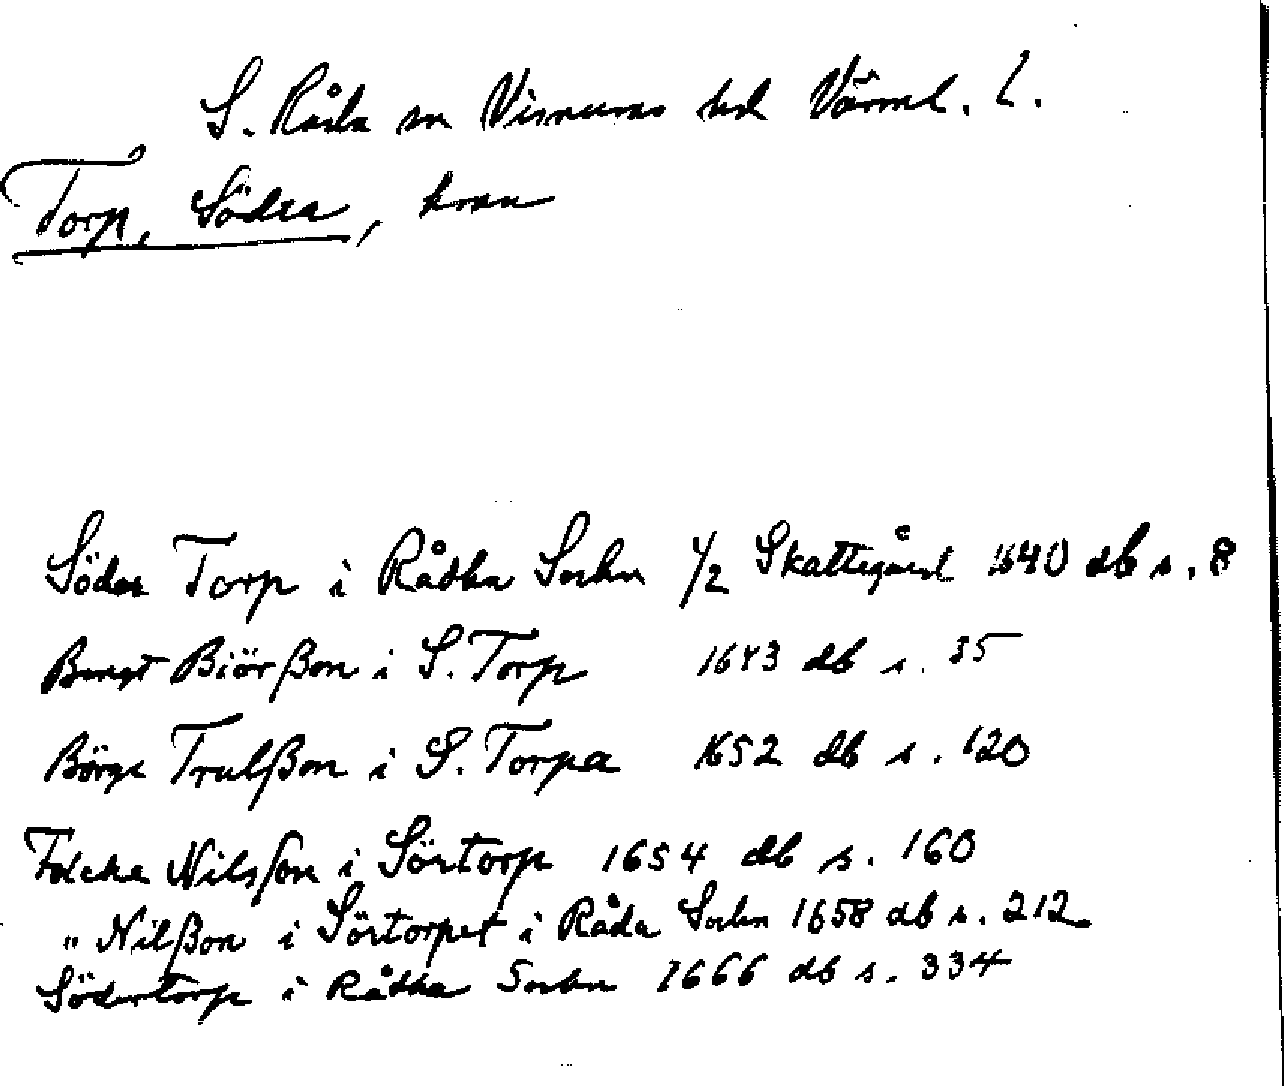 S. Råda sn Visnums hd Värml. l.
Torp, Södra, hmn
Söder Torp i Rådha Sochn 1/2 Skattegård 1640 db s. 8
Bengt Biörßon i S. Torp 1643 db s. 35
Börge Trulßon i S. Torpa 1652 db s. 120
Folcke Nilsson i Sörtorp 1654 db s. 160
" Nilßon i Sörtorpet i Råda Sochn 1658 db s. 212
Södertorp i Rådha Sochn 1666 db s. 334